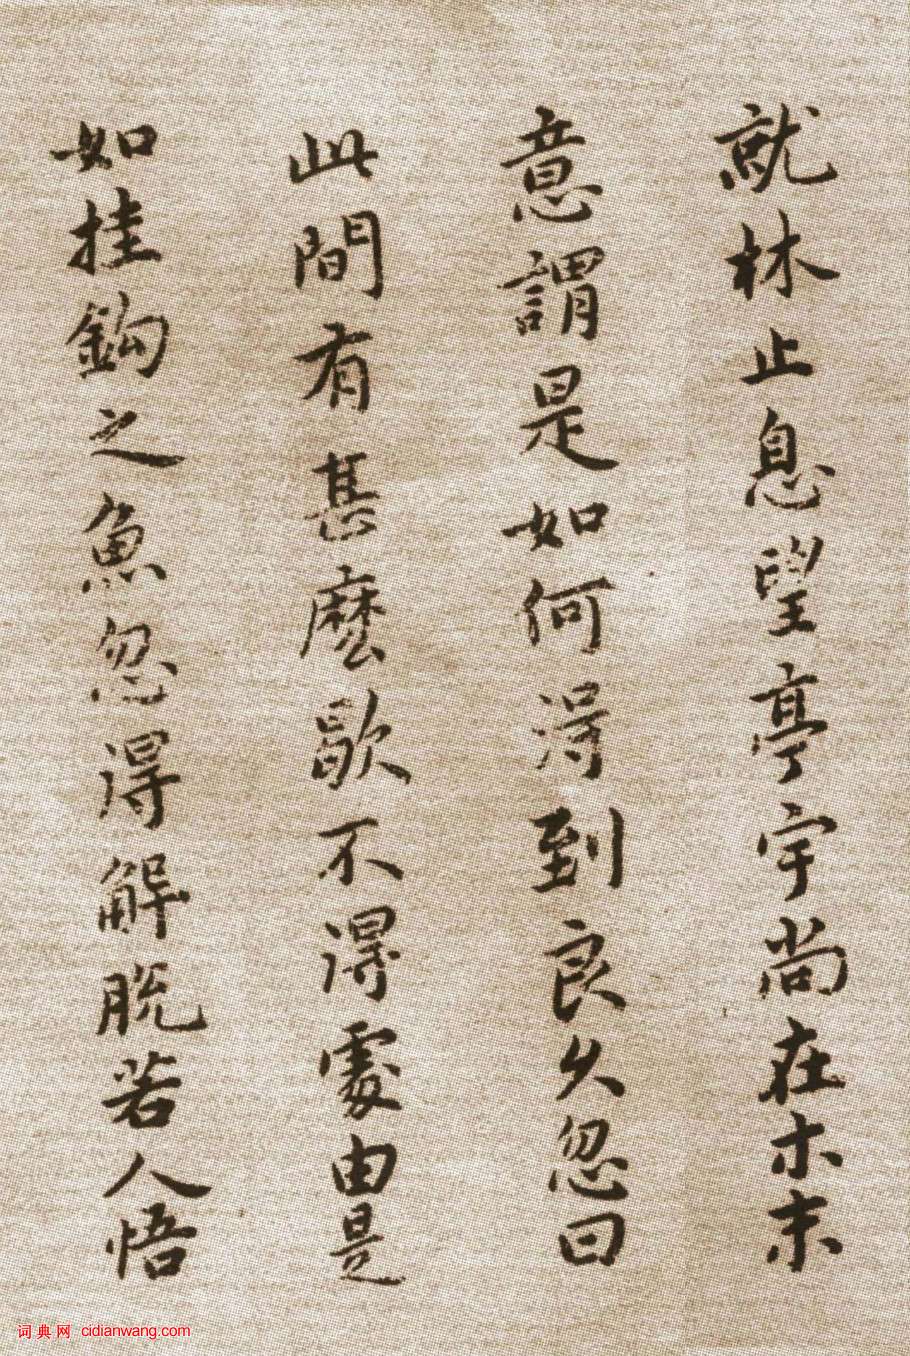 就林止息望亭宇尚在木末
意謂是如何得到良久忽曰
此間有甚麼歇不得處由是
如挂鈎之魚忽得解脫若人悟
词典网 cidianwang.com